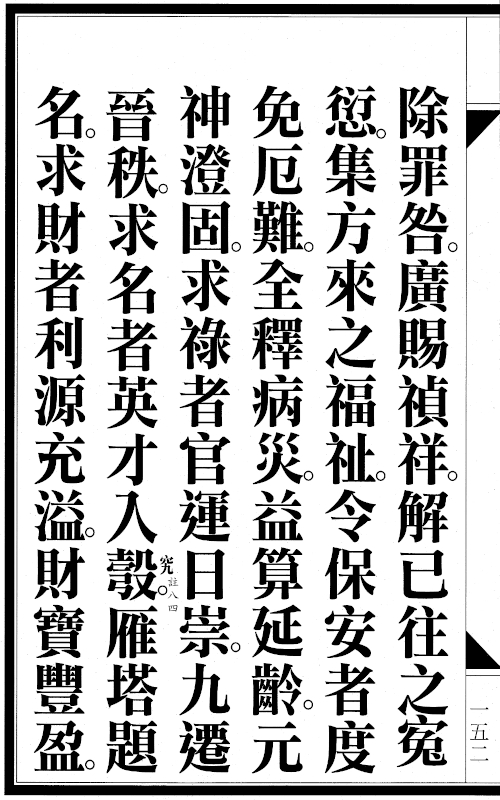 除罪咎。廣賜禎祥。解已往之冤
愆。集方來之福祉。令保安者度
免厄難。全釋病災。益算延齡。元
神澄固。求祿者官運日崇。九遷
晉秩。求名者英才入彀。究註八四雁塔題
名。求財者利源充溢。財寶豐盈。
一五二